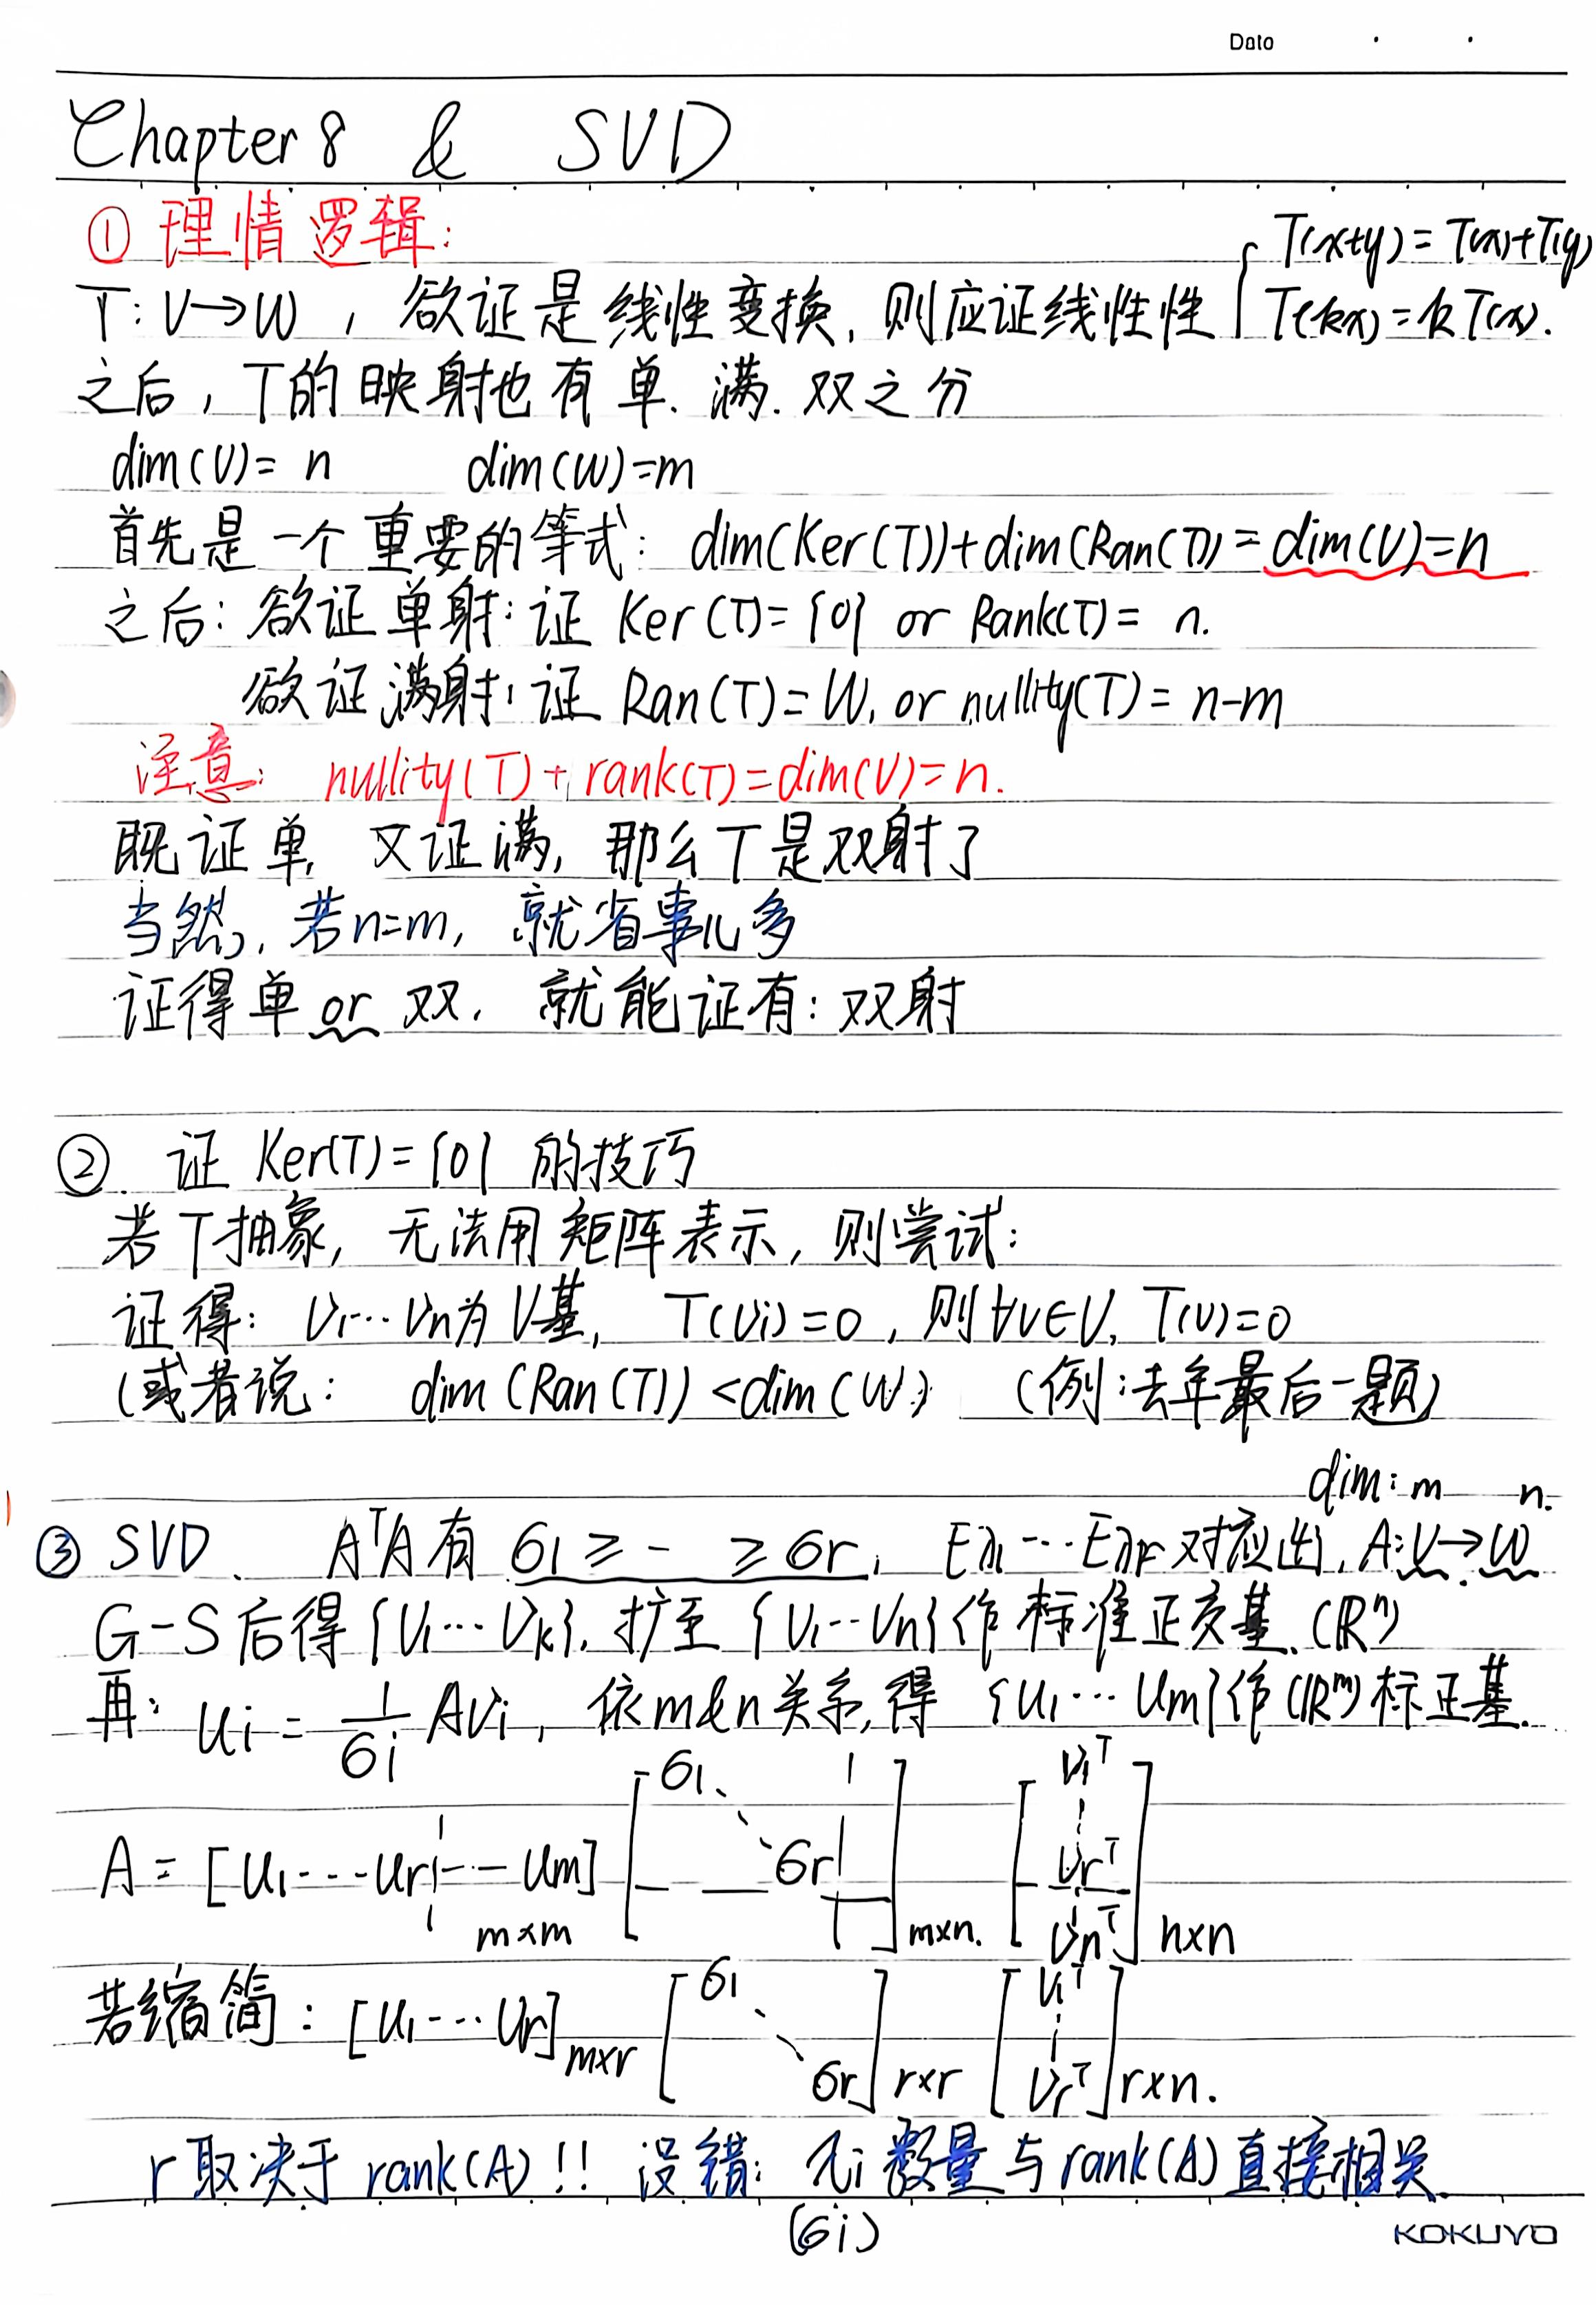 Dato
Chapter 8 & SVD
① 理情逻辑:
T: V→W , 欲证是线性变换, 则应证线性性 { T(x+y) = T(x)+T(y)
T(kx) = k T(x).
之后, T的映射也有 单. 满. 双之分
dim(V) = n dim(W)=m
首先是一个重要的等式: dim(Ker(T))+dim(Ran(T)) = dim(V)=n
之后: 欲证单射: 证 Ker(T)= {0} or Rank(T)= n.
欲证满射: 证 Ran(T)=W, or nullity(T) = n-m
注意: nullity(T) + rank(T)=dim(V)=n.
既证单, 又证满, 那么T是双射了
当然, 若n=m, 就省事儿多
证得单 or 双, 就能证有: 双射
②. 证 Ker(T)= {0} 的技巧
若T抽象, 无法用矩阵表示, 则尝试:
证得: v1…vn为V基, T(vi)=0, 则∀v∈V, T(v)=0
(或者说: dim(Ran(T)) <dim(W)) (例:去年最后一题)
dim: m n.
③ SVD. AᵀA有 σ1 ≥ - ≥ σr, Eλ1…Eλr 对应出, A: V→W
G-S后得{v1…vk}, 扩至 {v1…vn}作标准正交基. (ℝⁿ)
再: ui = 1/σi Avi, 依m&n关系,得 {u1…um}作(ℝᵐ)标正基.
A = [u1---ur¦-- um] m×m [σ1 ⋱ σr] m×n. [v1ᵀ ⋮ vrᵀ ⋮ vnᵀ] n×n
若缩简: [u1---ur] m×r [σ1 ⋱ σr] r×r [v1ᵀ ⋮ vrᵀ] r×n.
r取决于 rank(A)!! 没错: λi 数量与rank(A)直接相关.
(σi)
KOKUYO